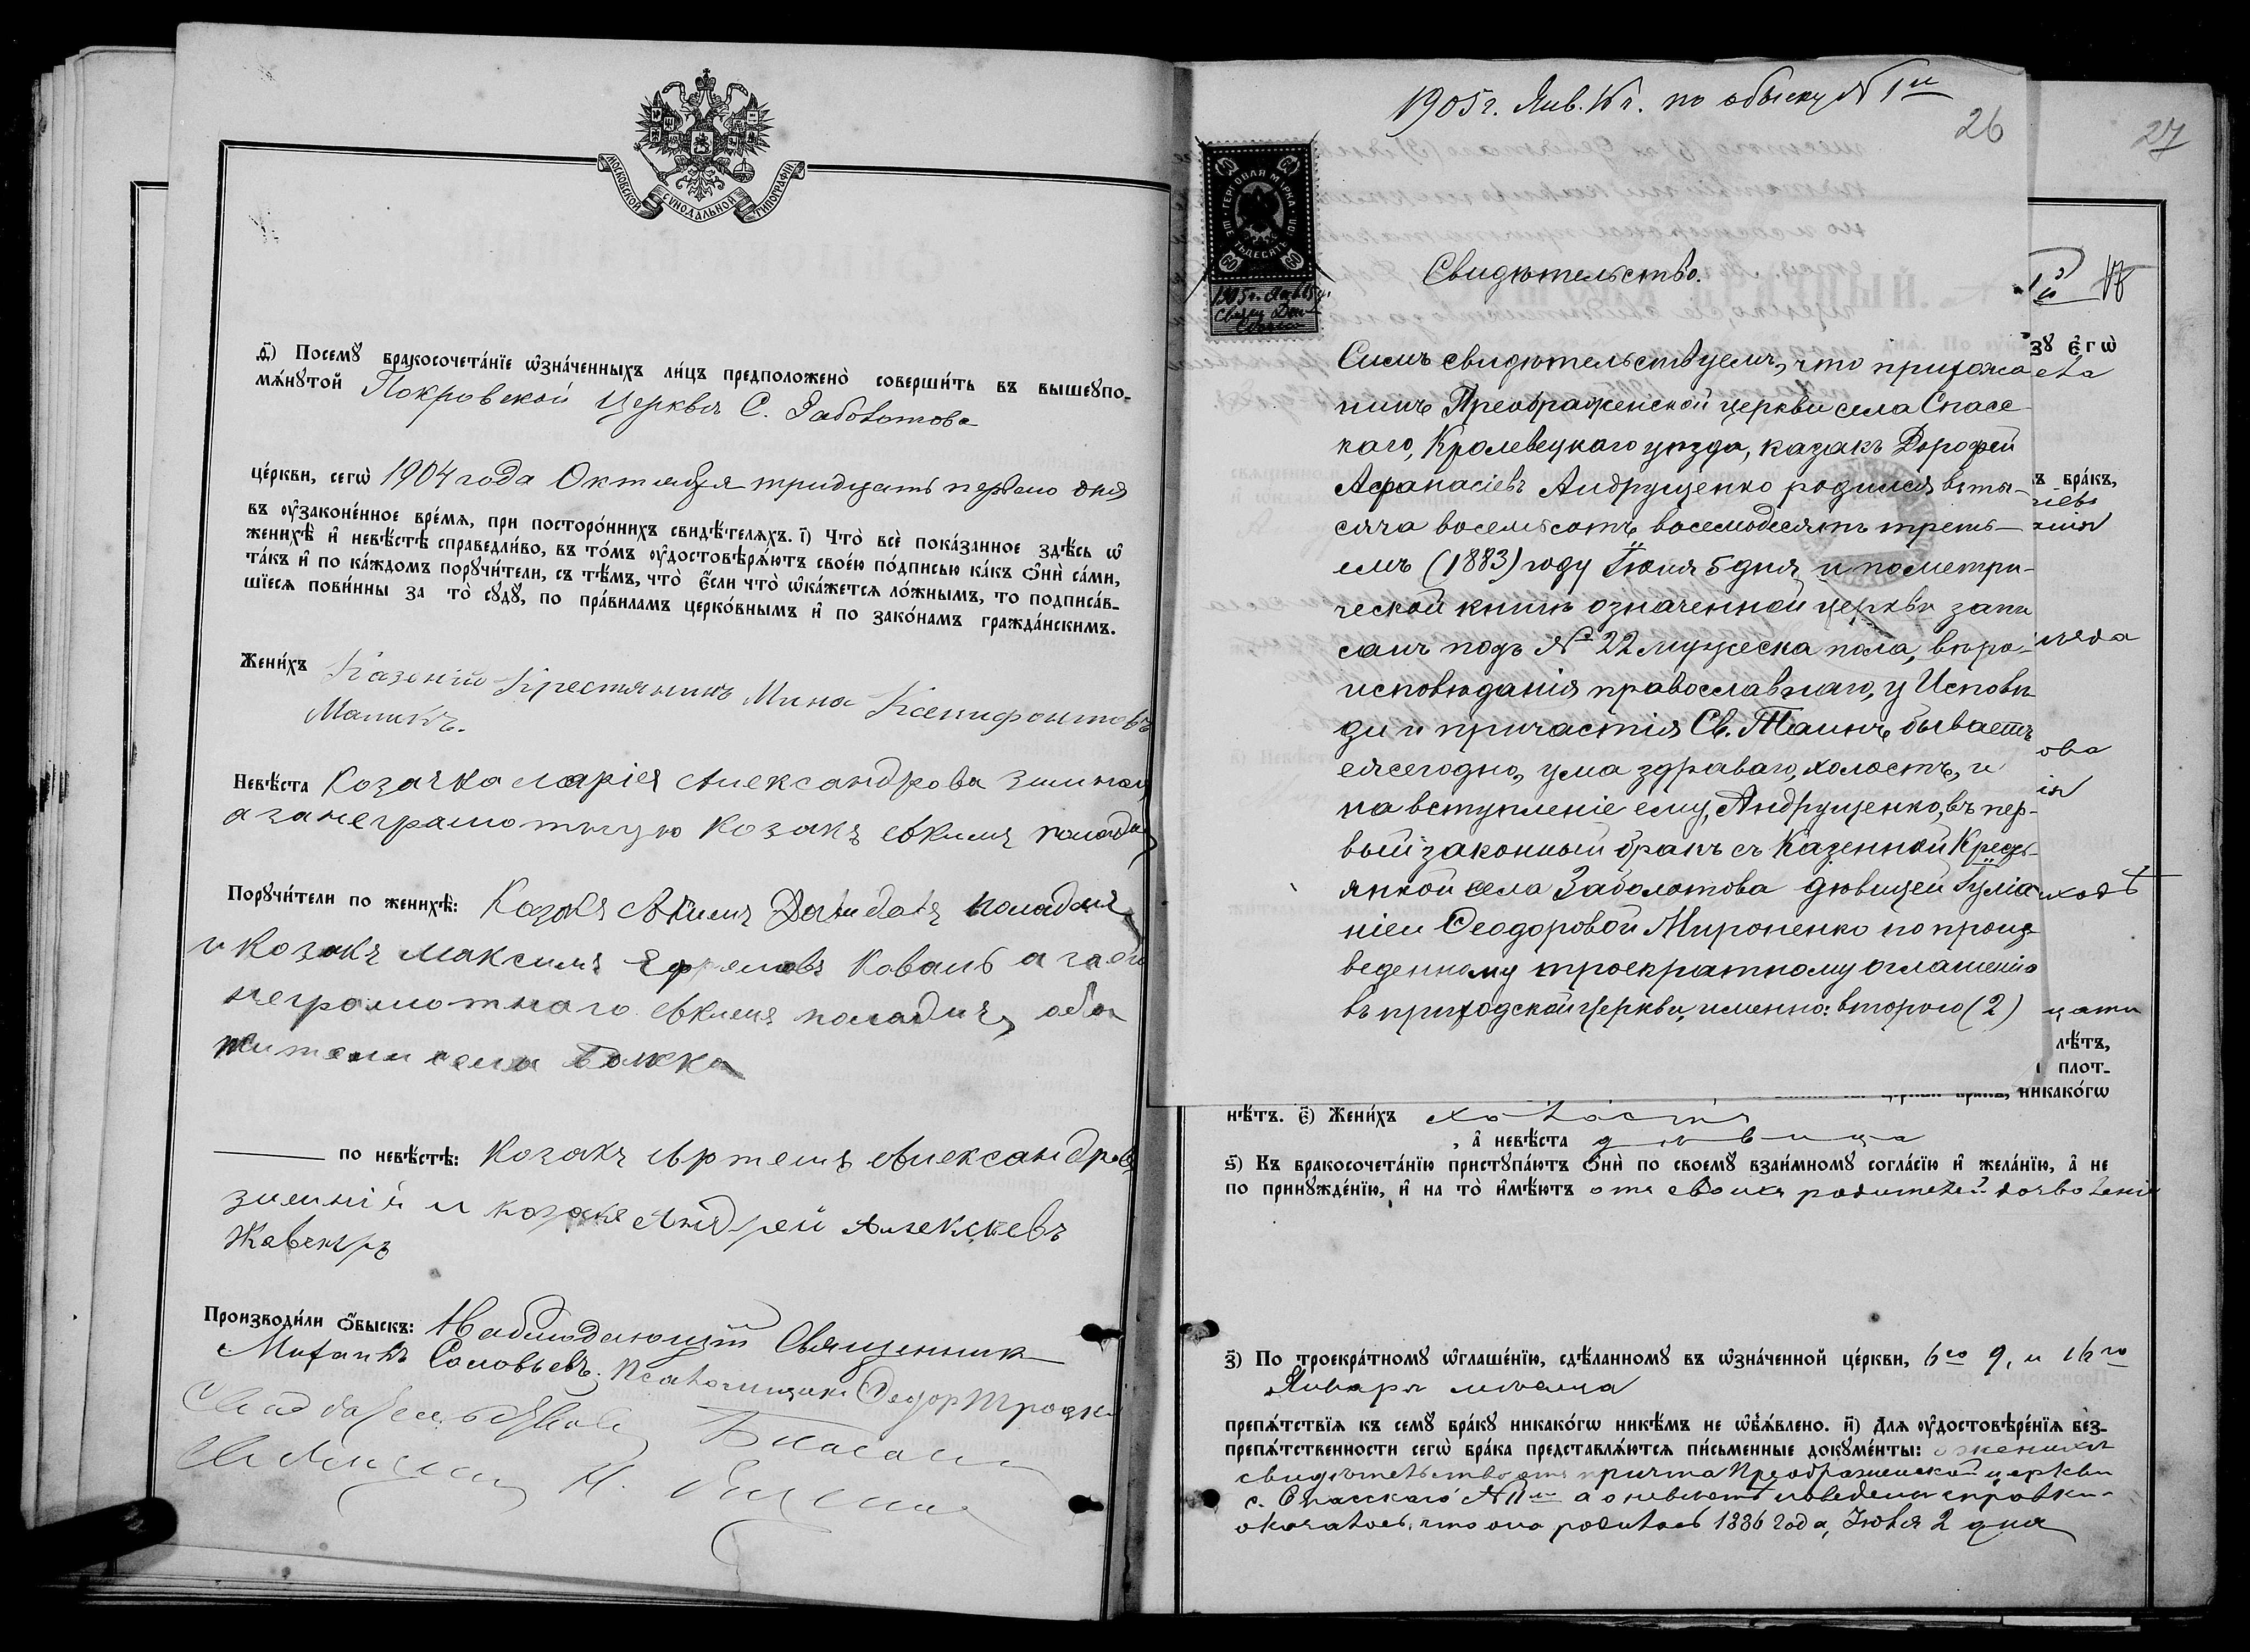 МОСКОВСКОЙ СѴНОДАЛЬНОЙ ТИПОГРАФІИ.
д҃) Посемꙋ бракосочета́нїе ѡзна́ченныхъ ли́цъ предположено̀ соверши́ть въ вышеꙋпо-
мѧ́нꙋтой Покровской церкви С. Заболотова
це́ркви, сегѡ̀ 1904 года Октября тридцать первого дня
въ ᲂу҆зако́ненное вре́мѧ, при посторо́ннихъ свидѣ́телѧхъ. і҃) Что̀ всѐ пока́занное здѣ́сь ѡ҆
женихѣ̀ и҆ невѣ́стѣ справедли́во, въ то́мъ ᲂу҆достовѣрѧ́ютъ свое́ю по́дписью ка́къ ѻ҆нѝ са́ми,
та́къ и҆ по ка́ждомъ порꙋчи́тели, съ тѣ́мъ, что̀ є҆́сли что̀ ѡ҆ка́жетсѧ ло́жнымъ, то подписа́в-
шїесѧ пови́нны за то̀ сꙋдꙋ̀, по пра́виламъ церко́внымъ и҆ по зако́намъ гражда́нскимъ.
Жени́хъ Казеный Крестянинъ Мина Ксенифонтовъ
Маликъ.
Невѣ́ста Козачка Марія Александрова Зимная
а за неграмотную козакъ Акимъ
Порꙋчи́тели по женихѣ̀: Козакъ Акимъ Давидовъ
и Козакъ Максимъ Ефремовъ Коваль а за его
неграмотного Акимъ оба
жители села
по невѣ́стѣ: Козакъ Артемъ Александровъ
Зимній и козакъ Андрей Алексѣевъ
Производи́ли ѻ҆́быскъ: Наблюдающій Священникъ
Михаилъ Соловьевъ. Псаломщикъ Федор Троцкі
1905 г. Янв. 16 г. по обыску № 1й
26
27
ГЕРБОВАЯ МАРКА
60
60
Свидѣтельство.
Симъ свидѣтельствуемъ, что прихожа
нинъ Преображенской церкви села Спасс
каго, Кролевецкаго уѣзда, казакъ Дорофей
Афанасіевъ Андрущенко родился въ ты-
сяча восемьсотъ восемьдесятъ треть-
емъ (1883) году Іюня 5 дня, и по метри-
ческой книгѣ означенной церкви запи
санъ подъ № 22 мужеска пола, вѣро-
исповѣданія православнаго, у Исповѣ
ди и причастія Св. Таинъ бываетъ
ежегодно, ума здраваго, холостъ, и
на вступленіе ему, Андрущенко, въ пер-
вый законный бракъ съ Казенной Кресть-
янкой села Заболотова дѣвицей Іуліа
ніей Феодоровой Мироненко по произ-
веденному троекратному оглашенію
въ приходской церкви, именно: второго (2)
зꙋ є҆гѡ̀
въ бра́къ,
лѣ́тъ,
плот-
никако́гѡ
нѣ́тъ. є҃) Жени́хъ холостъ
, а҆ невѣ́ста дѣвица
ѕ҃) Къ бракосочета́нїю пристꙋпа́ютъ ѻ҆нѝ по своемꙋ̀ взаи́мномꙋ согла́сїю и҆ жела́нїю, а҆ не
по принꙋжде́нїю, и҆ на то̀ и҆мѣ́ютъ отъ своихъ родителей дозволеніе
з҃) По троекра́тномꙋ ѡ҆глаше́нїю, сдѣ́ланномꙋ въ ѡ҆зна́ченной це́ркви, 6го 9, и 16го
Января мѣсяца
препѧ́тствїѧ къ семꙋ̀ бра́кꙋ никако́гѡ никѣ́мъ не ѡ҆б̾ѧ́влено. и҃) Длѧ ᲂу҆достовѣре́нїѧ без-
препѧ́тственности сегѡ̀ бра́ка представлѧ́ютсѧ пи́сьменные докꙋме́нты: о женихѣ
свидѣтельство отъ причта Преображенской церкви
с. Спасскаго № 11м а о невѣстѣ наведены справки
оказалось, что она родилась 1886 года, Іюля 2 дня